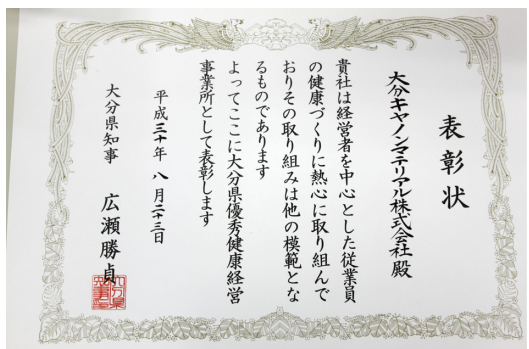 表彰状
大分キヤノンマテリアル株式会社殿
貴社は経営者を中心とした従業員
の健康づくりに熱心に取り組んで
おりその取り組みは他の模範とな
るものであります
よってここに大分県優秀健康経営
事業所として表彰します
平成三十年八月二十三日
大分県知事 広瀬勝貞